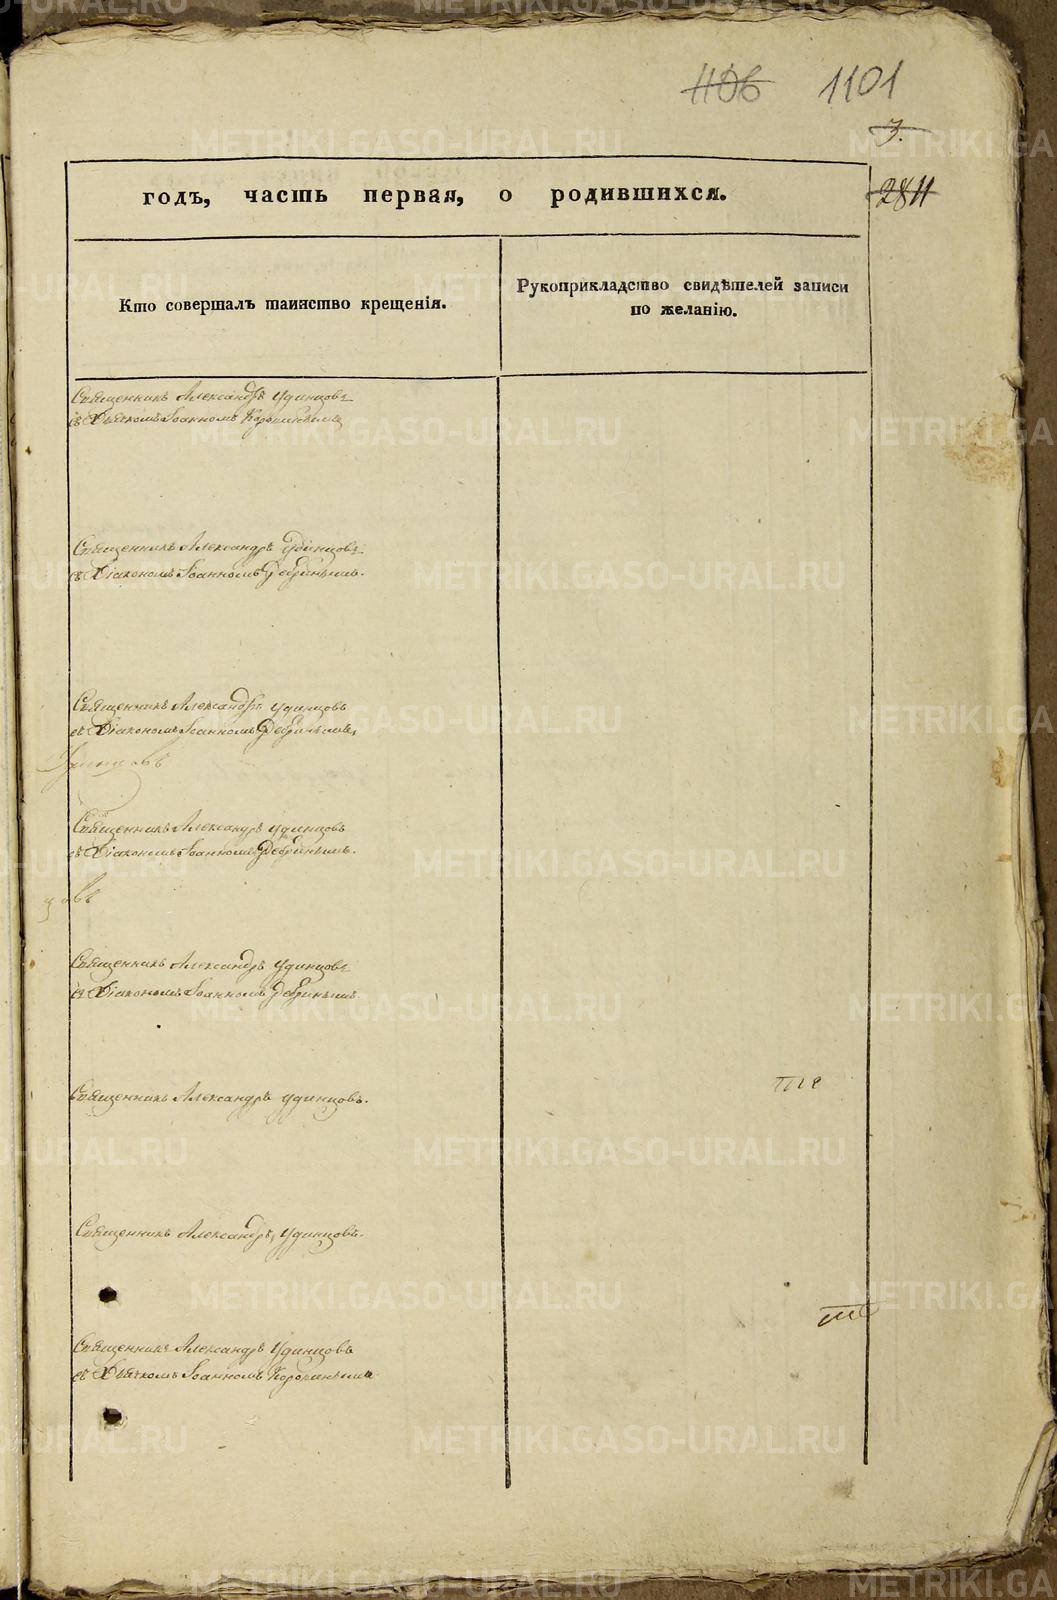 1106 1101
3.
годъ, часть первая, о родившихся.
2811
Кто совершалъ таинство крещенія.
Рукоприкладство свидѣтелей записи
по желанію.
Священникъ Александръ Удинцовъ
съ Дьячкомъ Іоанномъ
Священникъ Александръ Удинцовъ
съ Діакономъ Іоанномъ Дебринымъ.
Священникъ Александръ Удинцовъ
съ Діакономъ Іоанномъ Дебринымъ,
Священникъ Александръ Удинцовъ
съ Діакономъ Іоанномъ Дебринымъ.
овъ
Священникъ Александръ Удинцовъ
съ Діакономъ Іоанномъ Дебринымъ.
Священникъ Александръ Удинцовъ.
Священникъ Александръ Удинцовъ.
Священникъ Александръ Удинцовъ
съ Дьячкомъ Іоанномъ
METRIKI.GASO-URAL.RU